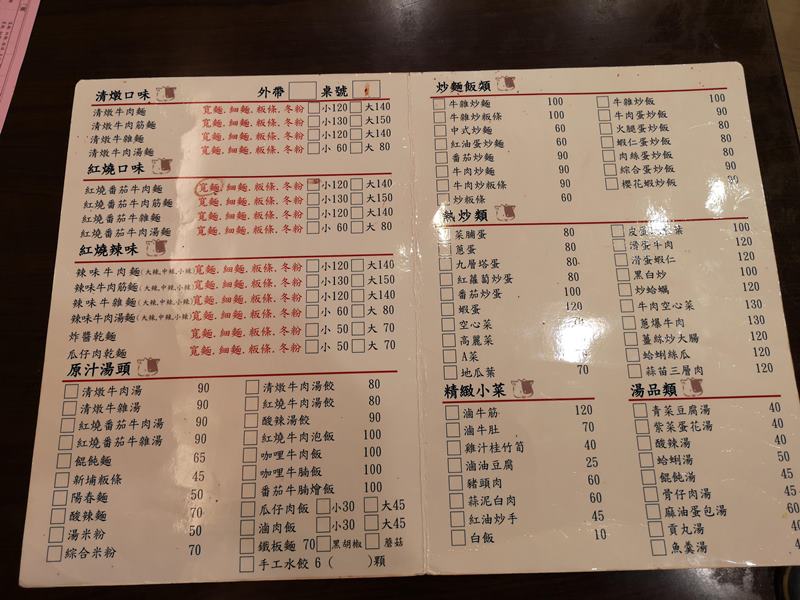 清燉口味 外帶 桌號
清燉牛肉麵 寬麵.細麵.粄條.冬粉 小120 大140
清燉牛肉筋麵 寬麵.細麵.粄條.冬粉 小130 大150
清燉牛雜麵 寬麵.細麵.粄條.冬粉 小120 大140
清燉牛肉湯麵 寬麵.細麵.粄條.冬粉 小 60 大 80
紅燒口味
紅燒番茄牛肉麵 寬麵.細麵.粄條.冬粉 小120 大140
紅燒番茄牛肉筋麵 寬麵.細麵.粄條.冬粉 小130 大150
紅燒番茄牛雜麵 寬麵.細麵.粄條.冬粉 小120 大140
紅燒番茄牛肉湯麵 寬麵.細麵.粄條.冬粉 小 60 大 80
紅燒辣味
辣味牛肉麵(大辣,中辣,小辣) 寬麵.細麵.粄條.冬粉 小120 大140
辣味牛肉筋麵(大辣,中辣,小辣) 寬麵.細麵.粄條.冬粉 小130 大150
辣味牛雜麵(大辣,中辣,小辣) 寬麵.細麵.粄條.冬粉 小120 大140
辣味牛肉湯麵(大辣,中辣,小辣) 寬麵.細麵.粄條.冬粉 小 60 大 80
炸醬乾麵 寬麵.細麵.粄條.冬粉 小 50 大 70
瓜仔肉乾麵 寬麵.細麵.粄條.冬粉 小 50 大 70
原汁湯頭
清燉牛肉湯 90
清燉牛雜湯 90
紅燒番茄牛肉湯 90
紅燒番茄牛雜湯 90
餛飩麵 65
新埔粄條 45
陽春麵 50
酸辣麵 70
湯米粉 50
綜合米粉 70
清燉牛肉湯餃 80
紅燒牛肉湯餃 80
酸辣湯餃 90
紅燒牛肉泡飯 100
咖哩牛肉飯 100
咖哩牛腩飯 100
番茄牛腩燴飯 100
瓜仔肉飯 小30 大45
滷肉飯 小30 大45
鐵板麵 70 黑胡椒 蘑菇
手工水餃 6 ( )顆
炒麵飯類
牛雜炒麵 100
牛雜炒粄條 100
中式炒麵 60
紅油蛋炒麵 60
番茄炒麵 90
牛肉炒麵 90
牛肉炒粄條 90
炒粄條 60
牛雜炒飯 100
牛肉蛋炒飯 90
火腿蛋炒飯 80
蝦仁蛋炒飯 80
肉絲蛋炒飯 80
綜合蛋炒飯 90
櫻花蝦炒飯
熱炒類
菜脯蛋 80
蔥蛋 80
九層塔蛋 80
紅蘿蔔炒蛋 80
番茄炒蛋 100
蝦蛋 120
空心菜
高麗菜
A菜
地瓜葉 70
皮蛋 100
滑蛋牛肉 120
滑蛋蝦仁 120
黑白炒 100
炒蛤蠣 120
牛肉空心菜 130
蔥爆牛肉 130
薑絲炒大腸 120
蛤蜊絲瓜 120
蒜苗三層肉 120
精緻小菜
滷牛筋 120
滷牛肚 70
雞汁桂竹筍 40
滷油豆腐 25
豬頭肉 60
蒜泥白肉 60
紅油炒手 45
白飯 10
湯品類
青菜豆腐湯 40
紫菜蛋花湯 40
酸辣湯 40
蛤蜊湯 50
餛飩湯 45
骨仔肉湯 45
麻油蛋包湯 60
貢丸湯 40
魚羹湯